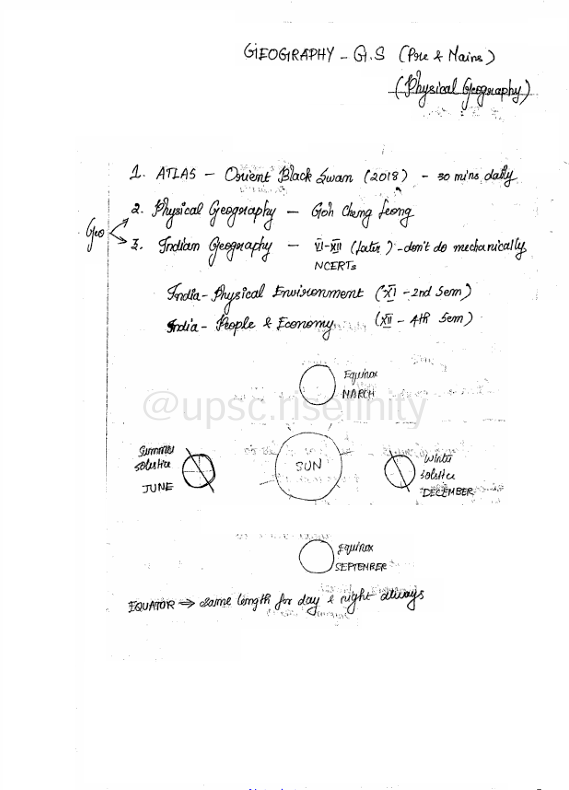 GEOGRAPHY - G.S (Pre & Mains)
(Physical Geography)
1. ATLAS - Orient Black Swan (2018) - 30 mins daily
2. Physical Geography - Goh Cheng Leong
Geo
3. Indian Geography - VI-XII (later) - don't do mechanically
NCERTs
India - Physical Environment (XI - 2nd Sem)
India - People & Economy (XII - 4th Sem)
Equinox
MARCH
@upsc.risefinity
Summer
solstice
JUNE
SUN
Winter
solstice
DECEMBER
Equinox
SEPTEMBER
EQUATOR ⇒ same length for day & night always